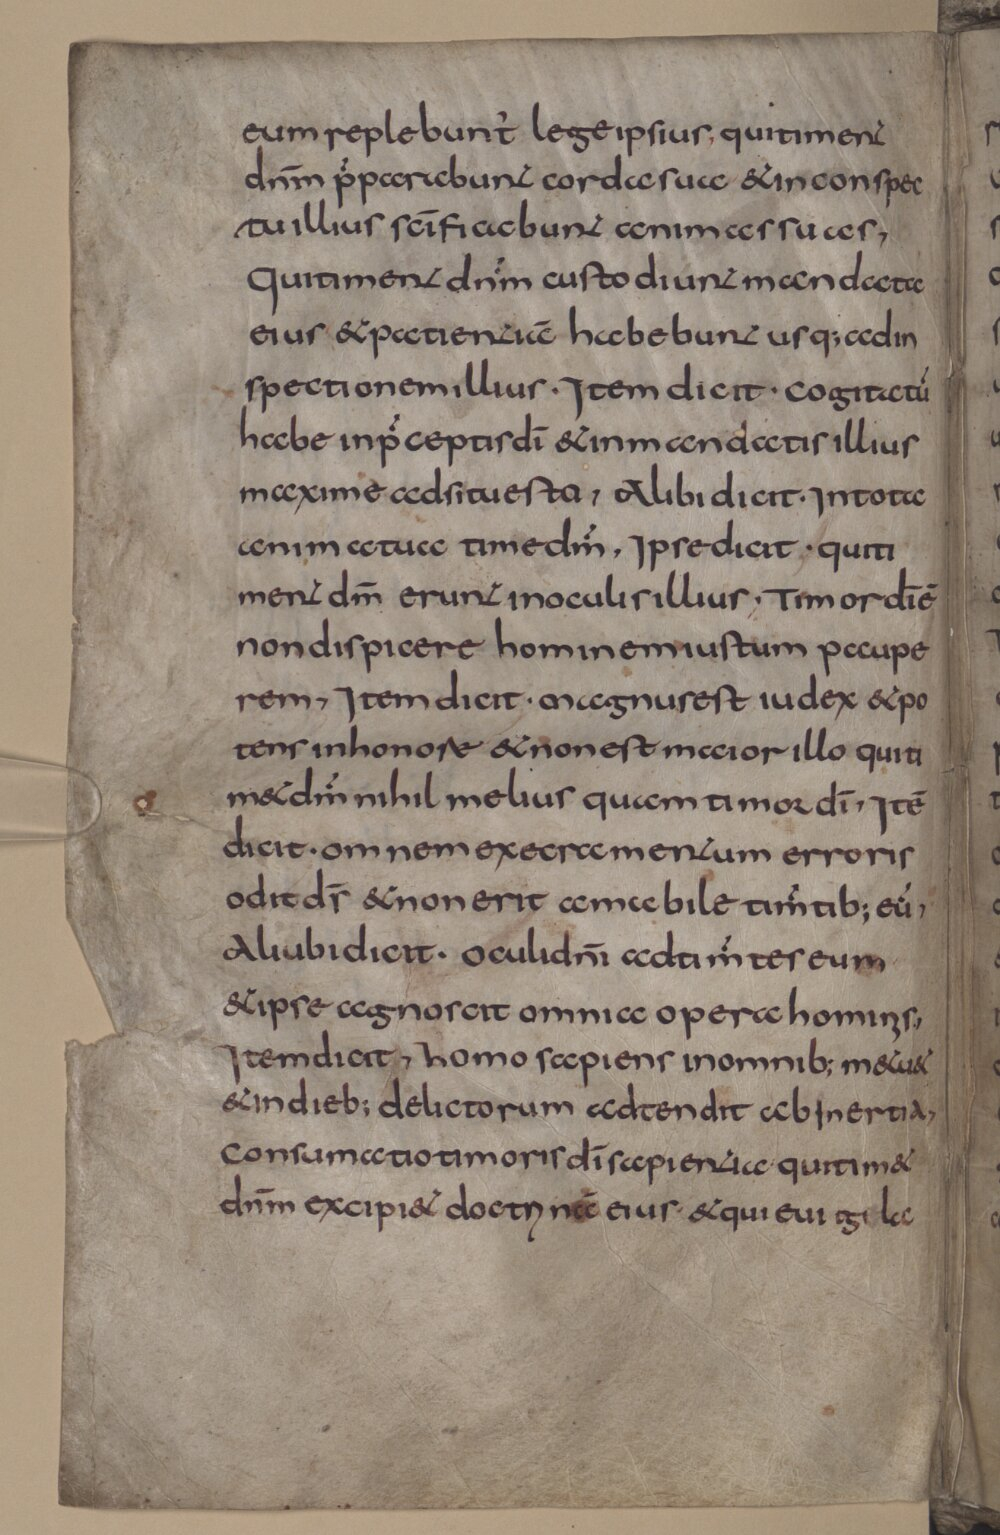 eum replebunt̄ lege ipsius, qui timent
dnm̄ p̄parabunt corda sua & in conspec
tu illius scīficabunt animas suas,
Qui timent dnm̄ custodiunt mandata
eius & patientiā habebunt usq; ad in
spectionem illius · Item dicit · cogitatū
habe in p̄ceptis dī & in mandatis illius
maxime adsitu esto, Alibi dicit · In tota
anima tua time dm̄, Ipse dicit · qui ti
ment dm̄ erunt in oculis illius · Timor dī ē
non dispicere hominem iustum paupe
rem, Item dicit · magnus est iudex & po
tens in honore & non est maior illo qui ti
m& dm̄ nihil melius quam timor dī, Itē
dicit · omnem execramentum erroris
odit dr̄ & non erit amabile tim̄tib; eū,
Aliubi dicit · oculi dnī ad tim̄tes eum
& ipse agnoscit omnia opera hominis,
Item dicit, homo sapiens in omnib; m&u&
& in dieb; delictorum adtendit ab inertia,
Consumatio timoris dī sapientia qui tim&
dnm̄ excipi& doctrinā eius & qui euigila